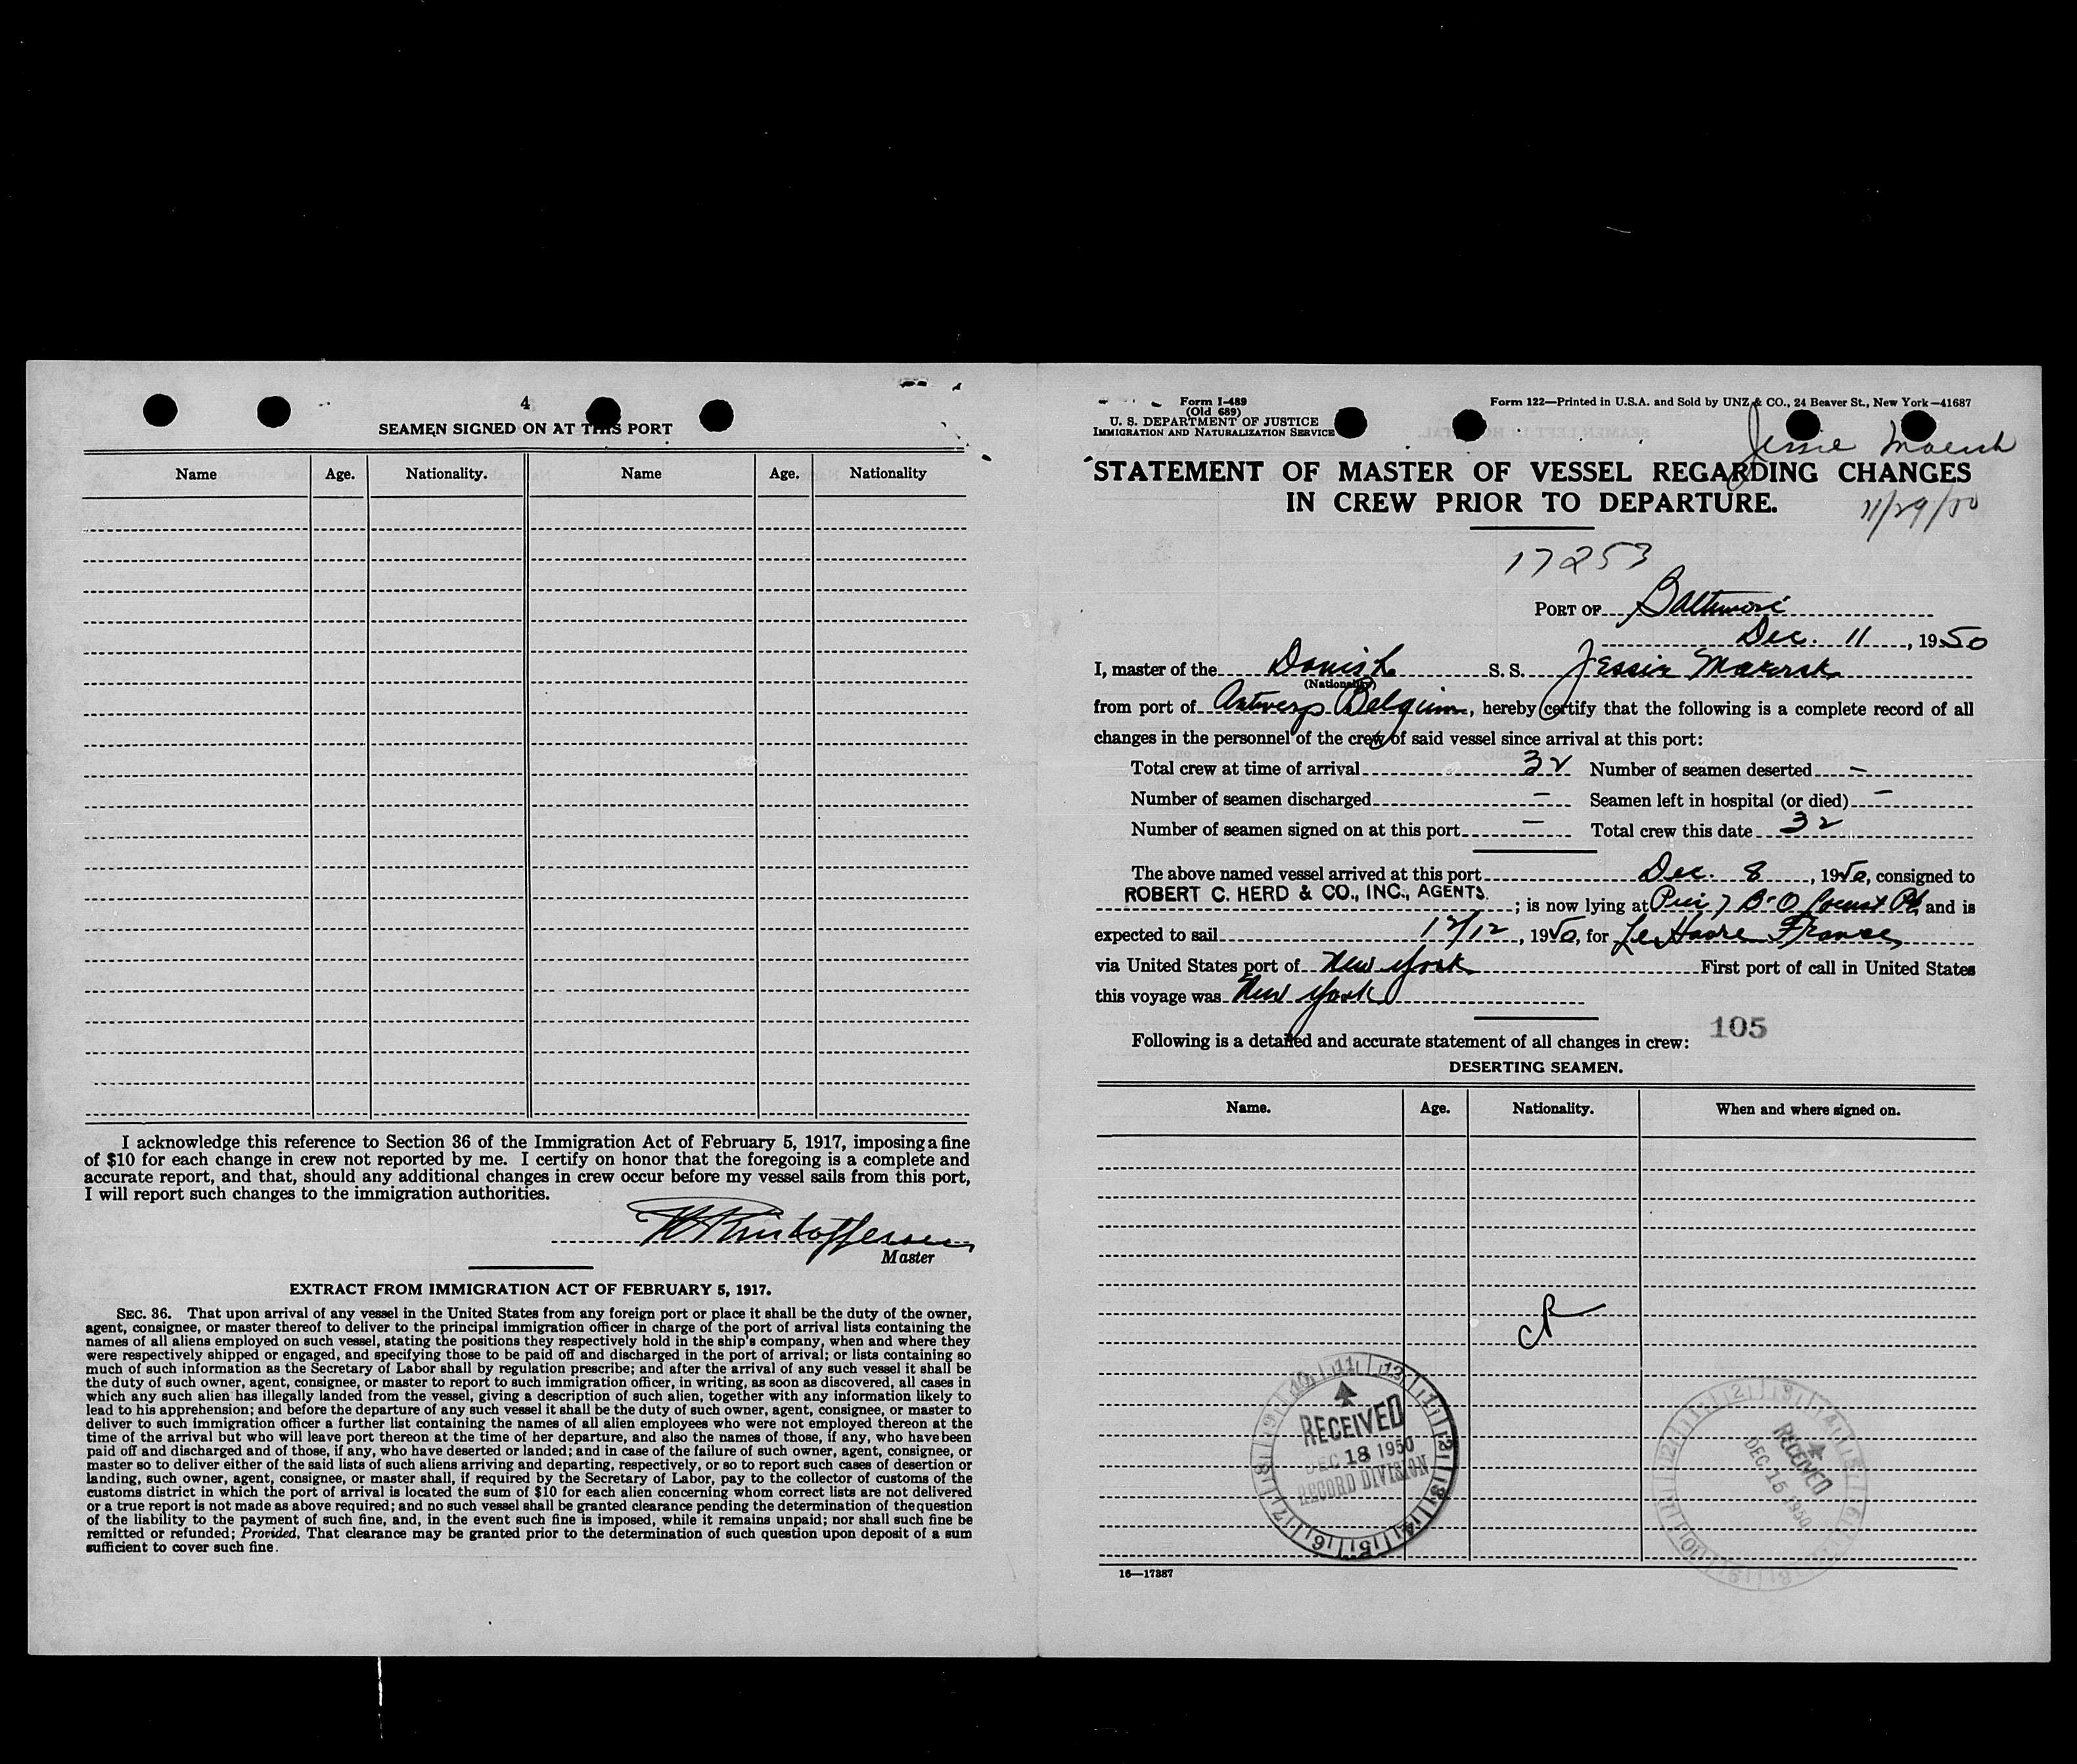 4
SEAMEN SIGNED ON AT THIS PORT
Name Age. Nationality. Name Age. Nationality
I acknowledge this reference to Section 36 of the Immigration Act of February 5, 1917, imposing a fine
of $10 for each change in crew not reported by me. I certify on honor that the foregoing is a complete and
accurate report, and that, should any additional changes in crew occur before my vessel sails from this port,
I will report such changes to the immigration authorities.
Master
EXTRACT FROM IMMIGRATION ACT OF FEBRUARY 5, 1917.
SEC. 36. That upon arrival of any vessel in the United States from any foreign port or place it shall be the duty of the owner,
agent, consignee, or master thereof to deliver to the principal immigration officer in charge of the port of arrival lists containing the
names of all aliens employed on such vessel, stating the positions they respectively hold in the ship's company, when and where they
were respectively shipped or engaged, and specifying those to be paid off and discharged in the port of arrival; or lists containing so
much of such information as the Secretary of Labor shall by regulation prescribe; and after the arrival of any such vessel it shall be
the duty of such owner, agent, consignee, or master to report to such immigration officer, in writing, as soon as discovered, all cases in
which any such alien has illegally landed from the vessel, giving a description of such alien, together with any information likely to
lead to his apprehension; and before the departure of any such vessel it shall be the duty of such owner, agent, consignee, or master to
deliver to such immigration officer a further list containing the names of all alien employees who were not employed thereon at the
time of the arrival but who will leave port thereon at the time of her departure, and also the names of those, if any, who have been
paid off and discharged and of those, if any, who have deserted or landed; and in case of the failure of such owner, agent, consignee, or
master so to deliver either of the said lists of such aliens arriving and departing, respectively, or so to report such cases of desertion or
landing, such owner, agent, consignee, or master shall, if required by the Secretary of Labor, pay to the collector of customs of the
customs district in which the port of arrival is located the sum of $10 for each alien concerning whom correct lists are not delivered
or a true report is not made as above required; and no such vessel shall be granted clearance pending the determination of the question
of the liability to the payment of such fine, and, in the event such fine is imposed, while it remains unpaid; nor shall such fine be
remitted or refunded; Provided, That clearance may be granted prior to the determination of such question upon deposit of a sum
sufficient to cover such fine.
Form I-489
(Old 689)
U. S. DEPARTMENT OF JUSTICE
IMMIGRATION AND NATURALIZATION SERVICE
Form 122—Printed in U.S.A. and Sold by UNZ & CO., 24 Beaver St., New York—41687
Jessie Maersk
STATEMENT OF MASTER OF VESSEL REGARDING CHANGES
IN CREW PRIOR TO DEPARTURE.
11/29/50
17253
PORT OF Baltimore
Dec. 11, 1950
I, master of the Danish S. S. Jessie Maersk
(Nationality)
from port of Antwerp Belgium, hereby certify that the following is a complete record of all
changes in the personnel of the crew of said vessel since arrival at this port:
Total crew at time of arrival 32 Number of seamen deserted -
Number of seamen discharged - Seamen left in hospital (or died) -
Number of seamen signed on at this port - Total crew this date 32
The above named vessel arrived at this port Dec. 8, 1950, consigned to
ROBERT C. HERD & CO., INC., AGENTS.; is now lying at Pier 7 B-O Locust Pt and is
expected to sail 12/12, 1950, for Le Havre France
via United States port of New York First port of call in United States
this voyage was New York
105
Following is a detailed and accurate statement of all changes in crew:
DESERTING SEAMEN.
Name. Age. Nationality. When and where signed on.
RECEIVED
DEC 18 1950
RECORD DIVISION
RECEIVED
DEC 15 1950
16—17387